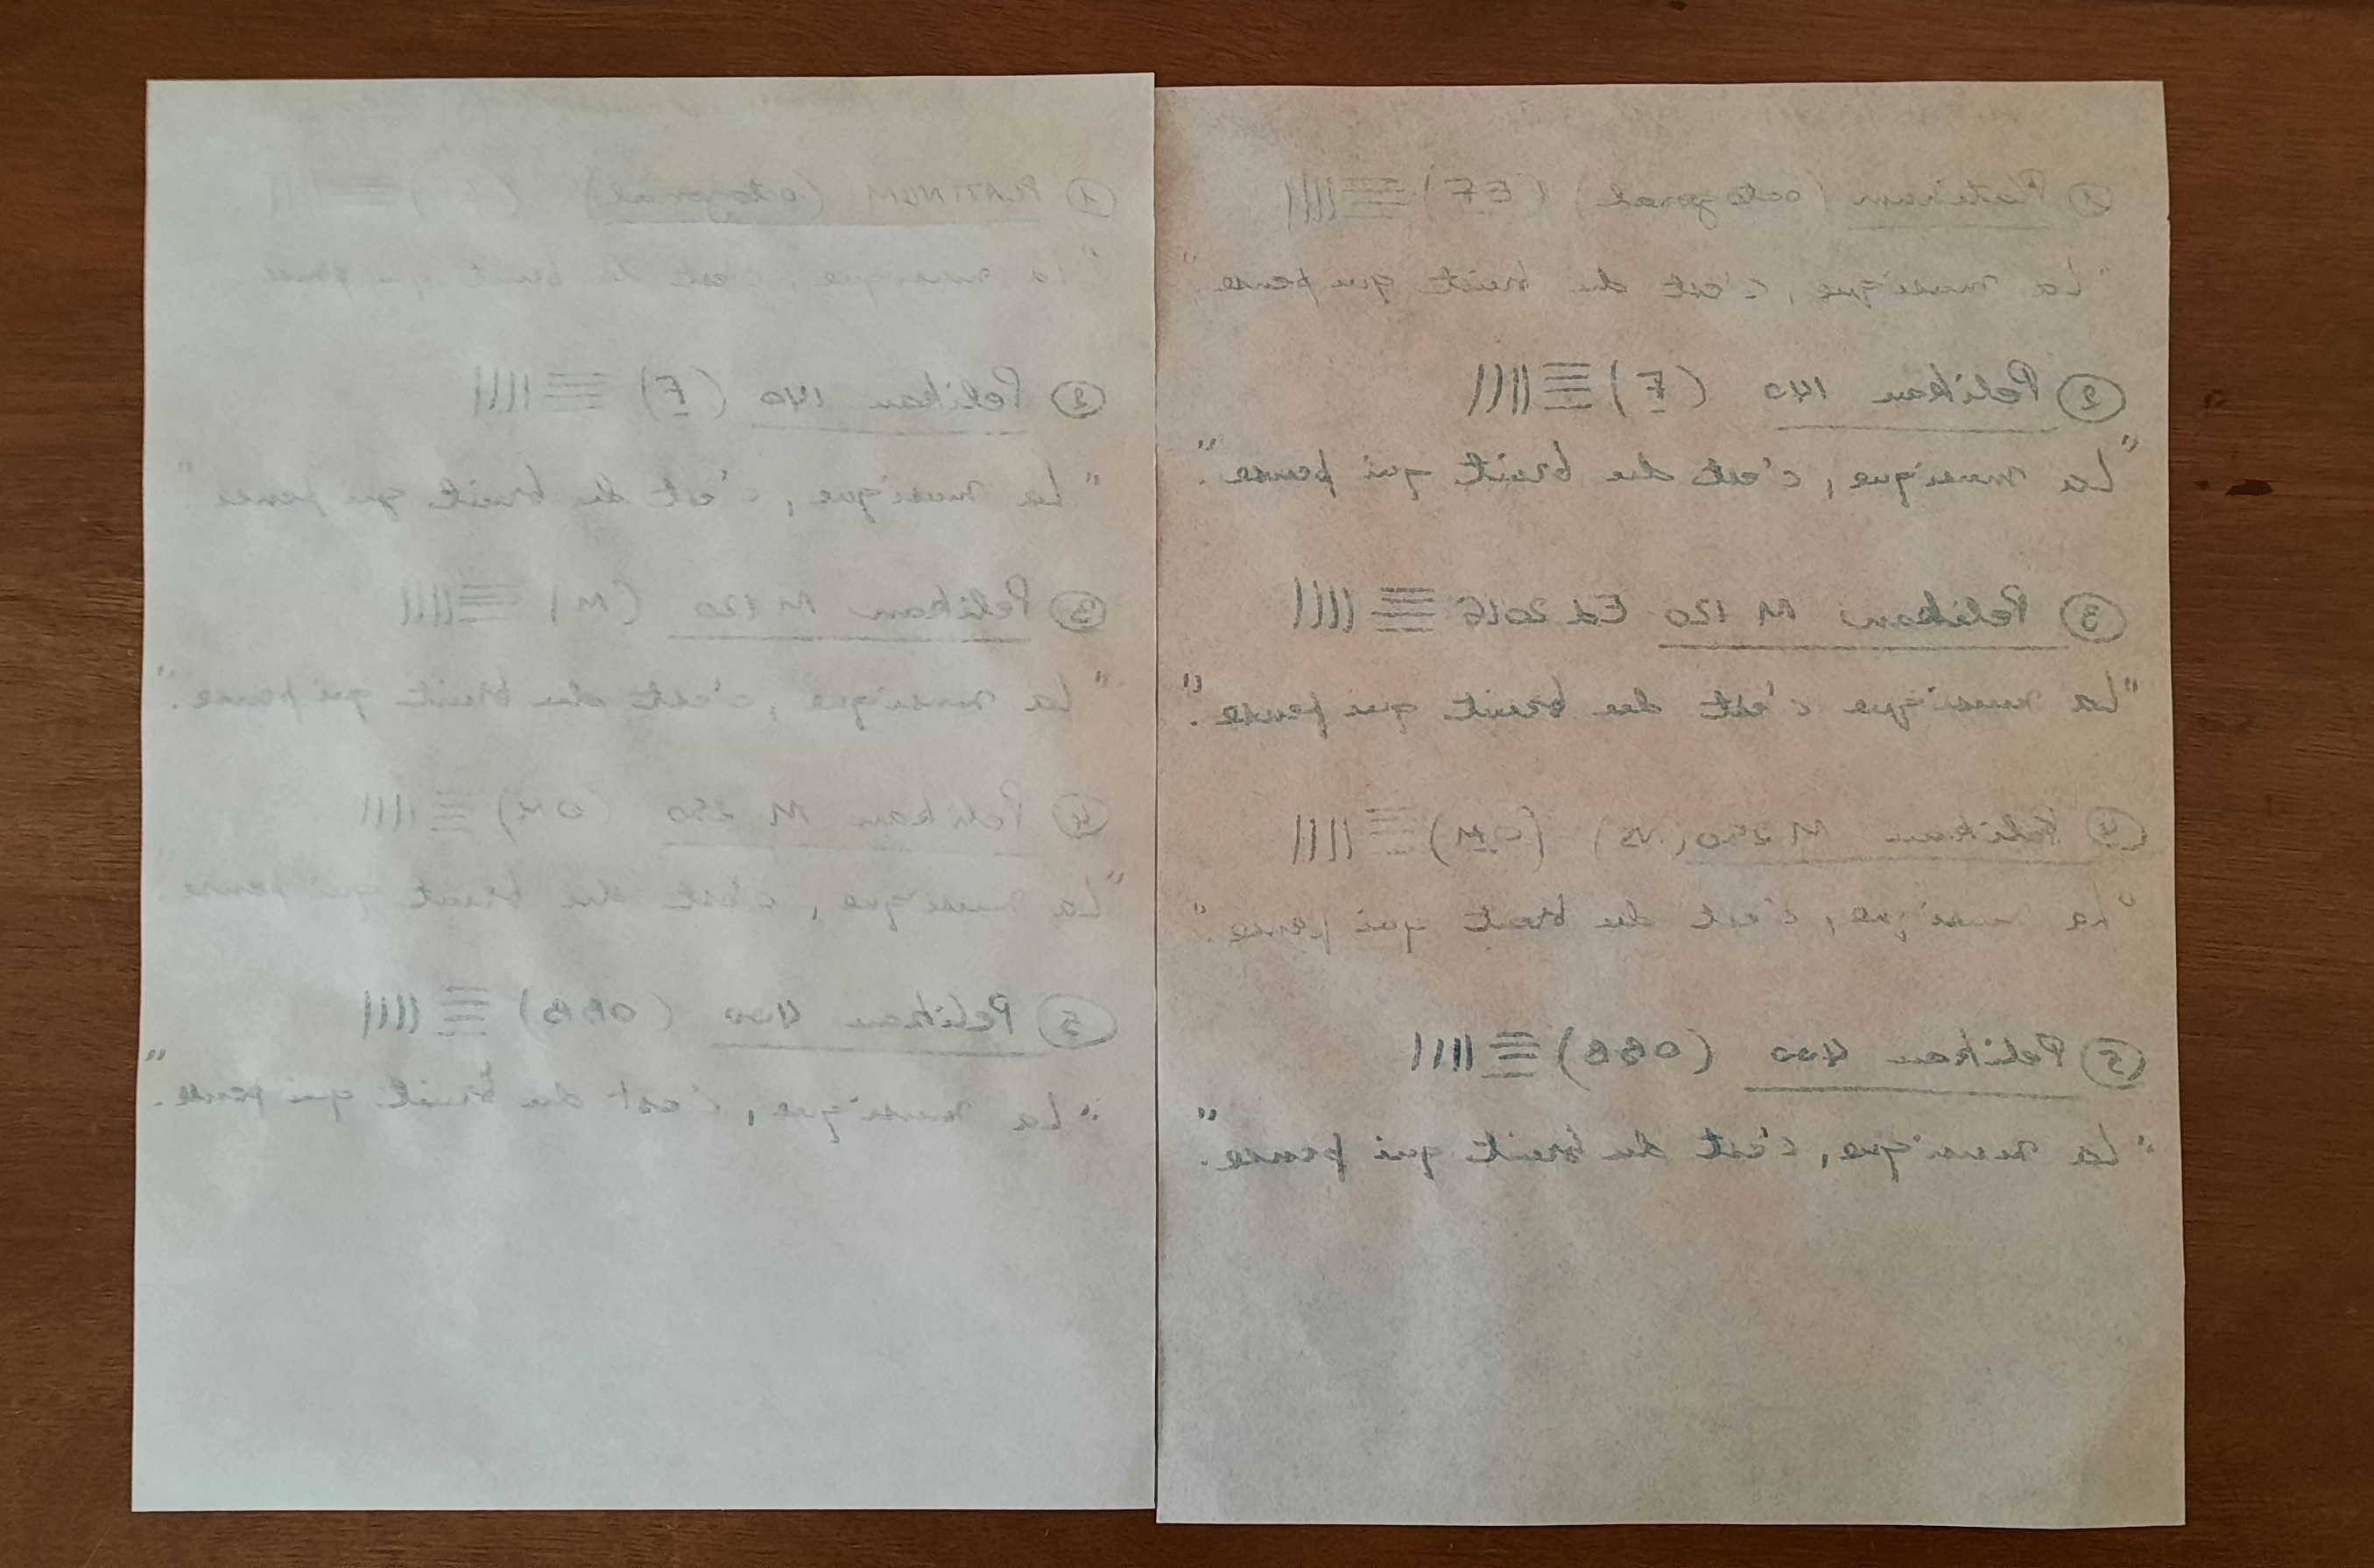 ① PLATINUM (octogonal) (EF)
"La musique, c'est du bruit qui pense.
② Pelikan 140 (F)
"La musique, c'est du bruit qui pense"
③ Pelikan M 120 (M)
"La musique, c'est du bruit qui pense."
④ Pelikan M 250 (OM)
"La musique, c'est du bruit qui pense.
⑤ Pelikan 400 (OBB)
"La musique, c'est du bruit qui pense."
① Platinum (octogonal) (EF)
"La musique, c'est du bruit qui pense"
② Pelikan 140 (F)
"La musique, c'est du bruit qui pense."
③ Pelikan M 120 Ed 2016
"La musique c'est du bruit qui pense."
④ Pelikan M 250 (OM)
"La musique, c'est du bruit qui pense."
⑤ Pelikan 400 (OBB)
"La musique, c'est du bruit qui pense."